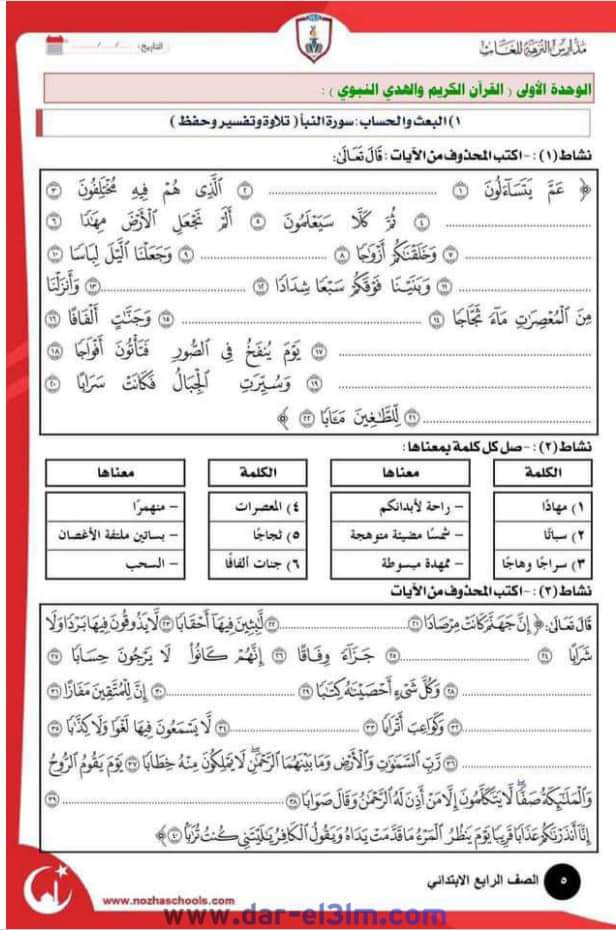 مدارس النزهة للغات
التاريخ: ....../....../......
الوحدة الأولى ( القرآن الكريم والهدي النبوي ) :
١) البعث والحساب: سورة النبأ ( تلاوة وتفسير وحفظ )
نشاط (١) : - اكتب المحذوف من الآيات : قَالَ تَعَالَى:
﴿ عَمَّ يَتَسَاءَلُونَ ① ........................ ② الَّذِى هُمْ فِيهِ مُخْتَلِفُونَ ③
........................ ④ ثُمَّ كَلَّا سَيَعْلَمُونَ ⑤ أَلَمْ نَجْعَلِ الْأَرْضَ مِهَٰدًا ⑥
........................ ⑦ وَخَلَقْنَٰكُمْ أَزْوَٰجًا ⑧ ........................ ⑨ وَجَعَلْنَا الَّيْلَ لِبَاسًا ⑩
........................ ⑪ وَبَنَيْنَا فَوْقَكُمْ سَبْعًا شِدَادًا ⑫ ........................ ⑬ وَأَنزَلْنَا
مِنَ الْمُعْصِرَٰتِ مَآءً ثَجَّاجًا ⑭ ........................ ⑮ وَجَنَّٰتٍ أَلْفَافًا ⑯
........................ ⑰ يَوْمَ يُنفَخُ فِى الصُّورِ فَتَأْتُونَ أَفْوَاجًا ⑱
........................ ⑲ وَسُيِّرَتِ الْجِبَالُ فَكَانَتْ سَرَابًا ⑳
........................ ㉑ لِّلطَّٰغِينَ مَـَٔابًا ㉒ ﴾
نشاط (٢) : - صل كل كلمة بمعناها :
الكلمة معناها الكلمة معناها
١) مهادًا - راحة لأبدانكم ٤) المعصرات - منهمرًا
٢) سباتًا - شمسًا مضيئة متوهجة ٥) ثجاجًا - بساتين ملتفة الأغصان
٣) سراجًا وهاجًا - ممهدة مبسوطة ٦) جنات ألفافًا - السحب
نشاط (٢) : - اكتب المحذوف من الآيات
قَالَ تَعَالَى: ﴿ إِنَّ جَهَنَّمَ كَانَتْ مِرْصَادًا ㉑ ........................ ㉒ لَّٰبِثِينَ فِيهَآ أَحْقَابًا ㉓ لَّا يَذُوقُونَ فِيهَا بَرْدًا وَلَا
شَرَابًا ㉔ ........................ ㉕ جَزَآءً وِفَاقًا ㉖ إِنَّهُمْ كَانُوا۟ لَا يَرْجُونَ حِسَابًا ㉗
........................ ㉘ وَكُلَّ شَىْءٍ أَحْصَيْنَٰهُ كِتَٰبًا ㉙ ........................ ㉚ إِنَّ لِلْمُتَّقِينَ مَفَازًا ㉛
........................ ㉜ وَكَوَاعِبَ أَتْرَابًا ㉝ ........................ ㉞ لَّا يَسْمَعُونَ فِيهَا لَغْوًا وَلَا كِذَّٰبًا ㉟
........................ ㊱ رَّبِّ السَّمَٰوَٰتِ وَالْأَرْضِ وَمَا بَيْنَهُمَا الرَّحْمَٰنِ لَا يَمْلِكُونَ مِنْهُ خِطَابًا ㊲ يَوْمَ يَقُومُ الرُّوحُ
وَالْمَلَٰٓئِكَةُ صَفًّا لَّا يَتَكَلَّمُونَ إِلَّا مَنْ أَذِنَ لَهُ الرَّحْمَٰنُ وَقَالَ صَوَابًا ㊳ ........................ ㊴
إِنَّآ أَنذَرْنَٰكُمْ عَذَابًا قَرِيبًا يَوْمَ يَنظُرُ الْمَرْءُ مَا قَدَّمَتْ يَدَاهُ وَيَقُولُ الْكَافِرُ يَٰلَيْتَنِى كُنتُ تُرَٰبًا ㊵ ﴾
٥ الصف الرابع الابتدائي
www.nozhaschools.com
www.dar-el3lm.com